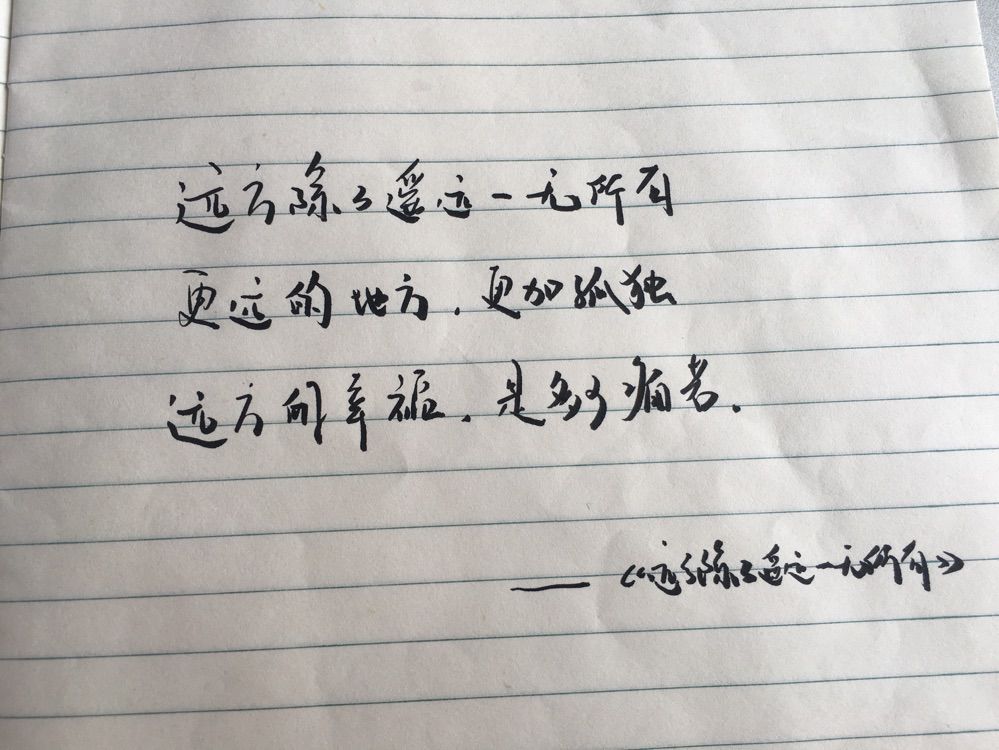 远方除了遥远一无所有
更远的地方，更加孤独
远方的幸福，是多少痛苦.
——《远方除了遥远一无所有》